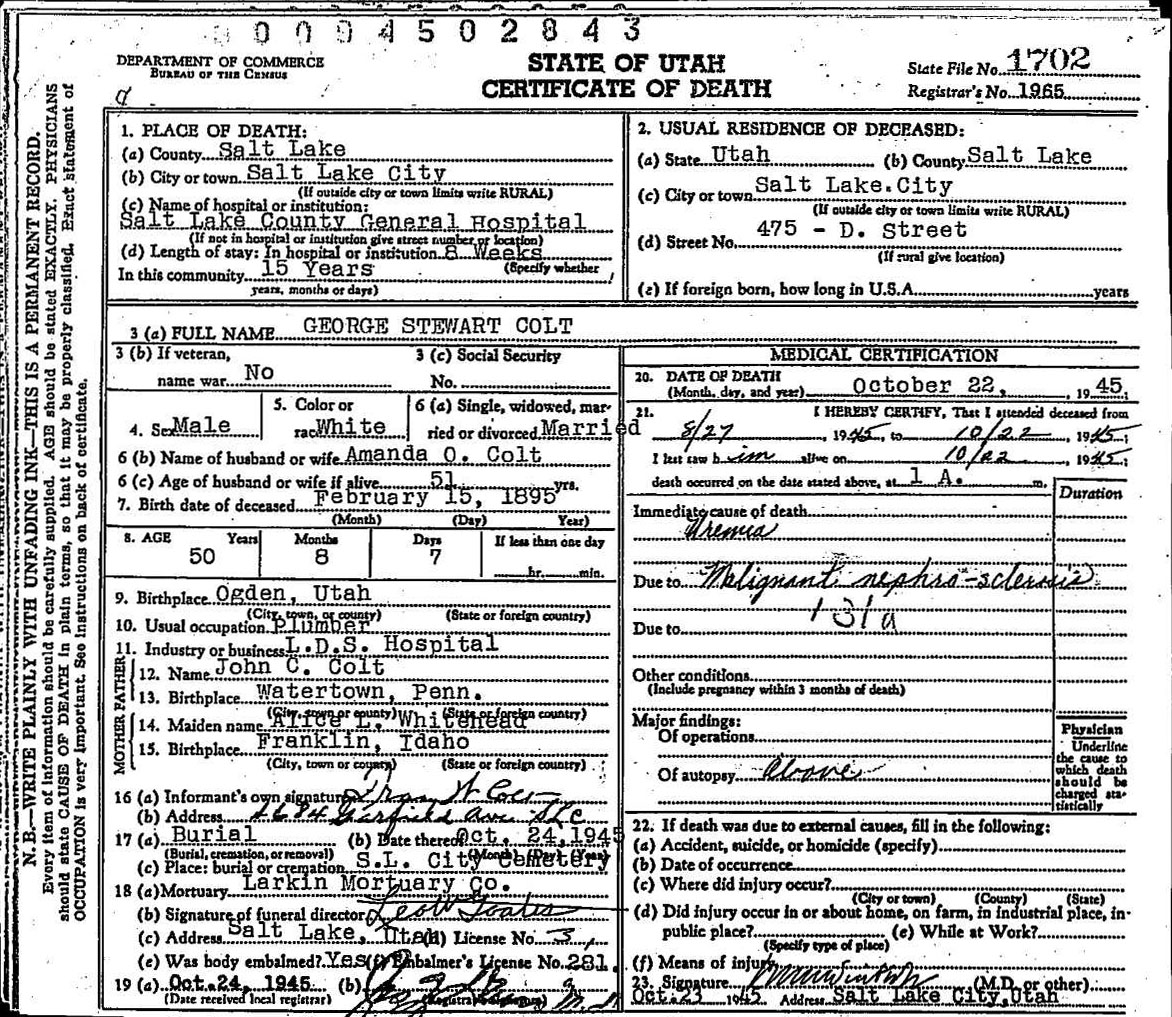 0004502843
DEPARTMENT OF COMMERCE
BUREAU OF THE CENSUS
STATE OF UTAH
CERTIFICATE OF DEATH
State File No. 1702
Registrar's No. 1965
N.B.—WRITE PLAINLY WITH UNFADING INK—THIS IS A PERMANENT RECORD.
Every item of information should be carefully supplied. AGE should be stated EXACTLY. PHYSICIANS
should state CAUSE OF DEATH in plain terms, so that it may be properly classified. Exact statement of
OCCUPATION is very important. See instructions on back of certificate.
1. PLACE OF DEATH:
(a) County Salt Lake
(b) City or town Salt Lake City
(If outside city or town limits write RURAL)
(c) Name of hospital or institution:
Salt Lake County General Hospital
(If not in hospital or institution give street number or location)
(d) Length of stay: In hospital or institution 8 Weeks
(Specify whether
In this community 15 Years
years, months or days)
2. USUAL RESIDENCE OF DECEASED:
(a) State Utah (b) County Salt Lake
(c) City or town Salt Lake City
(If outside city or town limits write RURAL)
(d) Street No. 475 - D. Street
(If rural give location)
(e) If foreign born, how long in U.S.A. years
3 (a) FULL NAME GEORGE STEWART COLT
3 (b) If veteran,
name war No
3 (c) Social Security
No.
4. Sex Male
5. Color or
race White
6 (a) Single, widowed, mar-
ried or divorced Married
6 (b) Name of husband or wife Amanda O. Colt
6 (c) Age of husband or wife if alive 51 yrs.
7. Birth date of deceased February 15, 1895
(Month) (Day) Year)
8. AGE Years Months Days If less than one day
50 8 7
hr. min.
9. Birthplace Ogden, Utah
(City, town, or county) (State or foreign country)
10. Usual occupation Plumber
11. Industry or business L.D.S. Hospital
FATHER
12. Name John C. Colt
13. Birthplace Watertown, Penn.
(City, town or county) (State or foreign country)
MOTHER
14. Maiden name Alice L. Whitehead
15. Birthplace Franklin, Idaho
(City, town or county) (State or foreign country)
16 (a) Informant's own signature
(b) Address Garfield Ave SLC
17 (a) Burial (b) Date thereof Oct. 24, 1945
(Burial, cremation, or removal) (Month) (Day) (Year)
(c) Place: burial or cremation S.L. City Cemetery
18 (a) Mortuary Larkin Mortuary Co.
(b) Signature of funeral director
(c) Address Salt Lake, Utah (d) License No. 3
(e) Was body embalmed? Yes (f) Embalmer's License No. 281
19 (a) Oct. 24, 1945 (b)
(Date received local registrar) (Registrar's signature)
MEDICAL CERTIFICATION
20. DATE OF DEATH
(Month, day, and year) October 22, 1945
21. I HEREBY CERTIFY, That I attended deceased from
8/27, 1945, to 10/22, 1945;
I last saw him alive on 10/22, 1945;
death occurred on the date stated above, at 1 A. m.
Duration
Immediate cause of death
Uremia
Due to Malignant nephro-sclerosis
131a
Due to
Other conditions
(Include pregnancy within 3 months of death)
Major findings:
Of operations
Of autopsy Above
Physician
Underline
the cause to
which death
should be
charged sta-
tistically
22. If death was due to external causes, fill in the following:
(a) Accident, suicide, or homicide (specify)
(b) Date of occurrence
(c) Where did injury occur?
(City or town) (County) (State)
(d) Did injury occur in or about home, on farm, in industrial place, in-
public place? (e) While at Work?
(Specify type of place)
(f) Means of injury
23. Signature (M.D. or other)
Oct. 23 1945 Address Salt Lake City, Utah